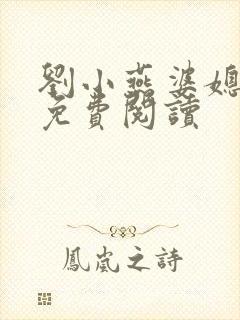 劉小燕婆媳
免費閱讀
鳳嵐之詩